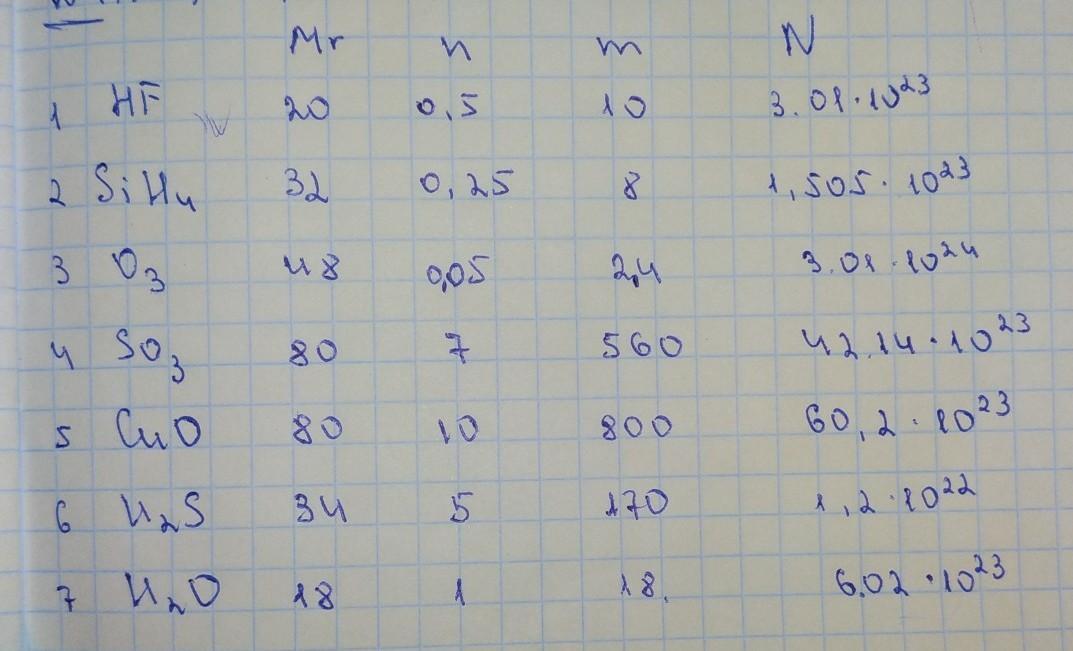 Mr n m N
1 HF 20 0,5 10 3.01·10²³
2 SiH₄ 32 0,25 8 1,505·10²³
3 O₃ 48 0,05 2,4 3.01·10²⁴
4 SO₃ 80 7 560 42.14·10²³
5 CuO 80 10 800 60,2·10²³
6 H₂S 34 5 170 1,2·10²²
7 H₂O 18 1 18. 6.02·10²³